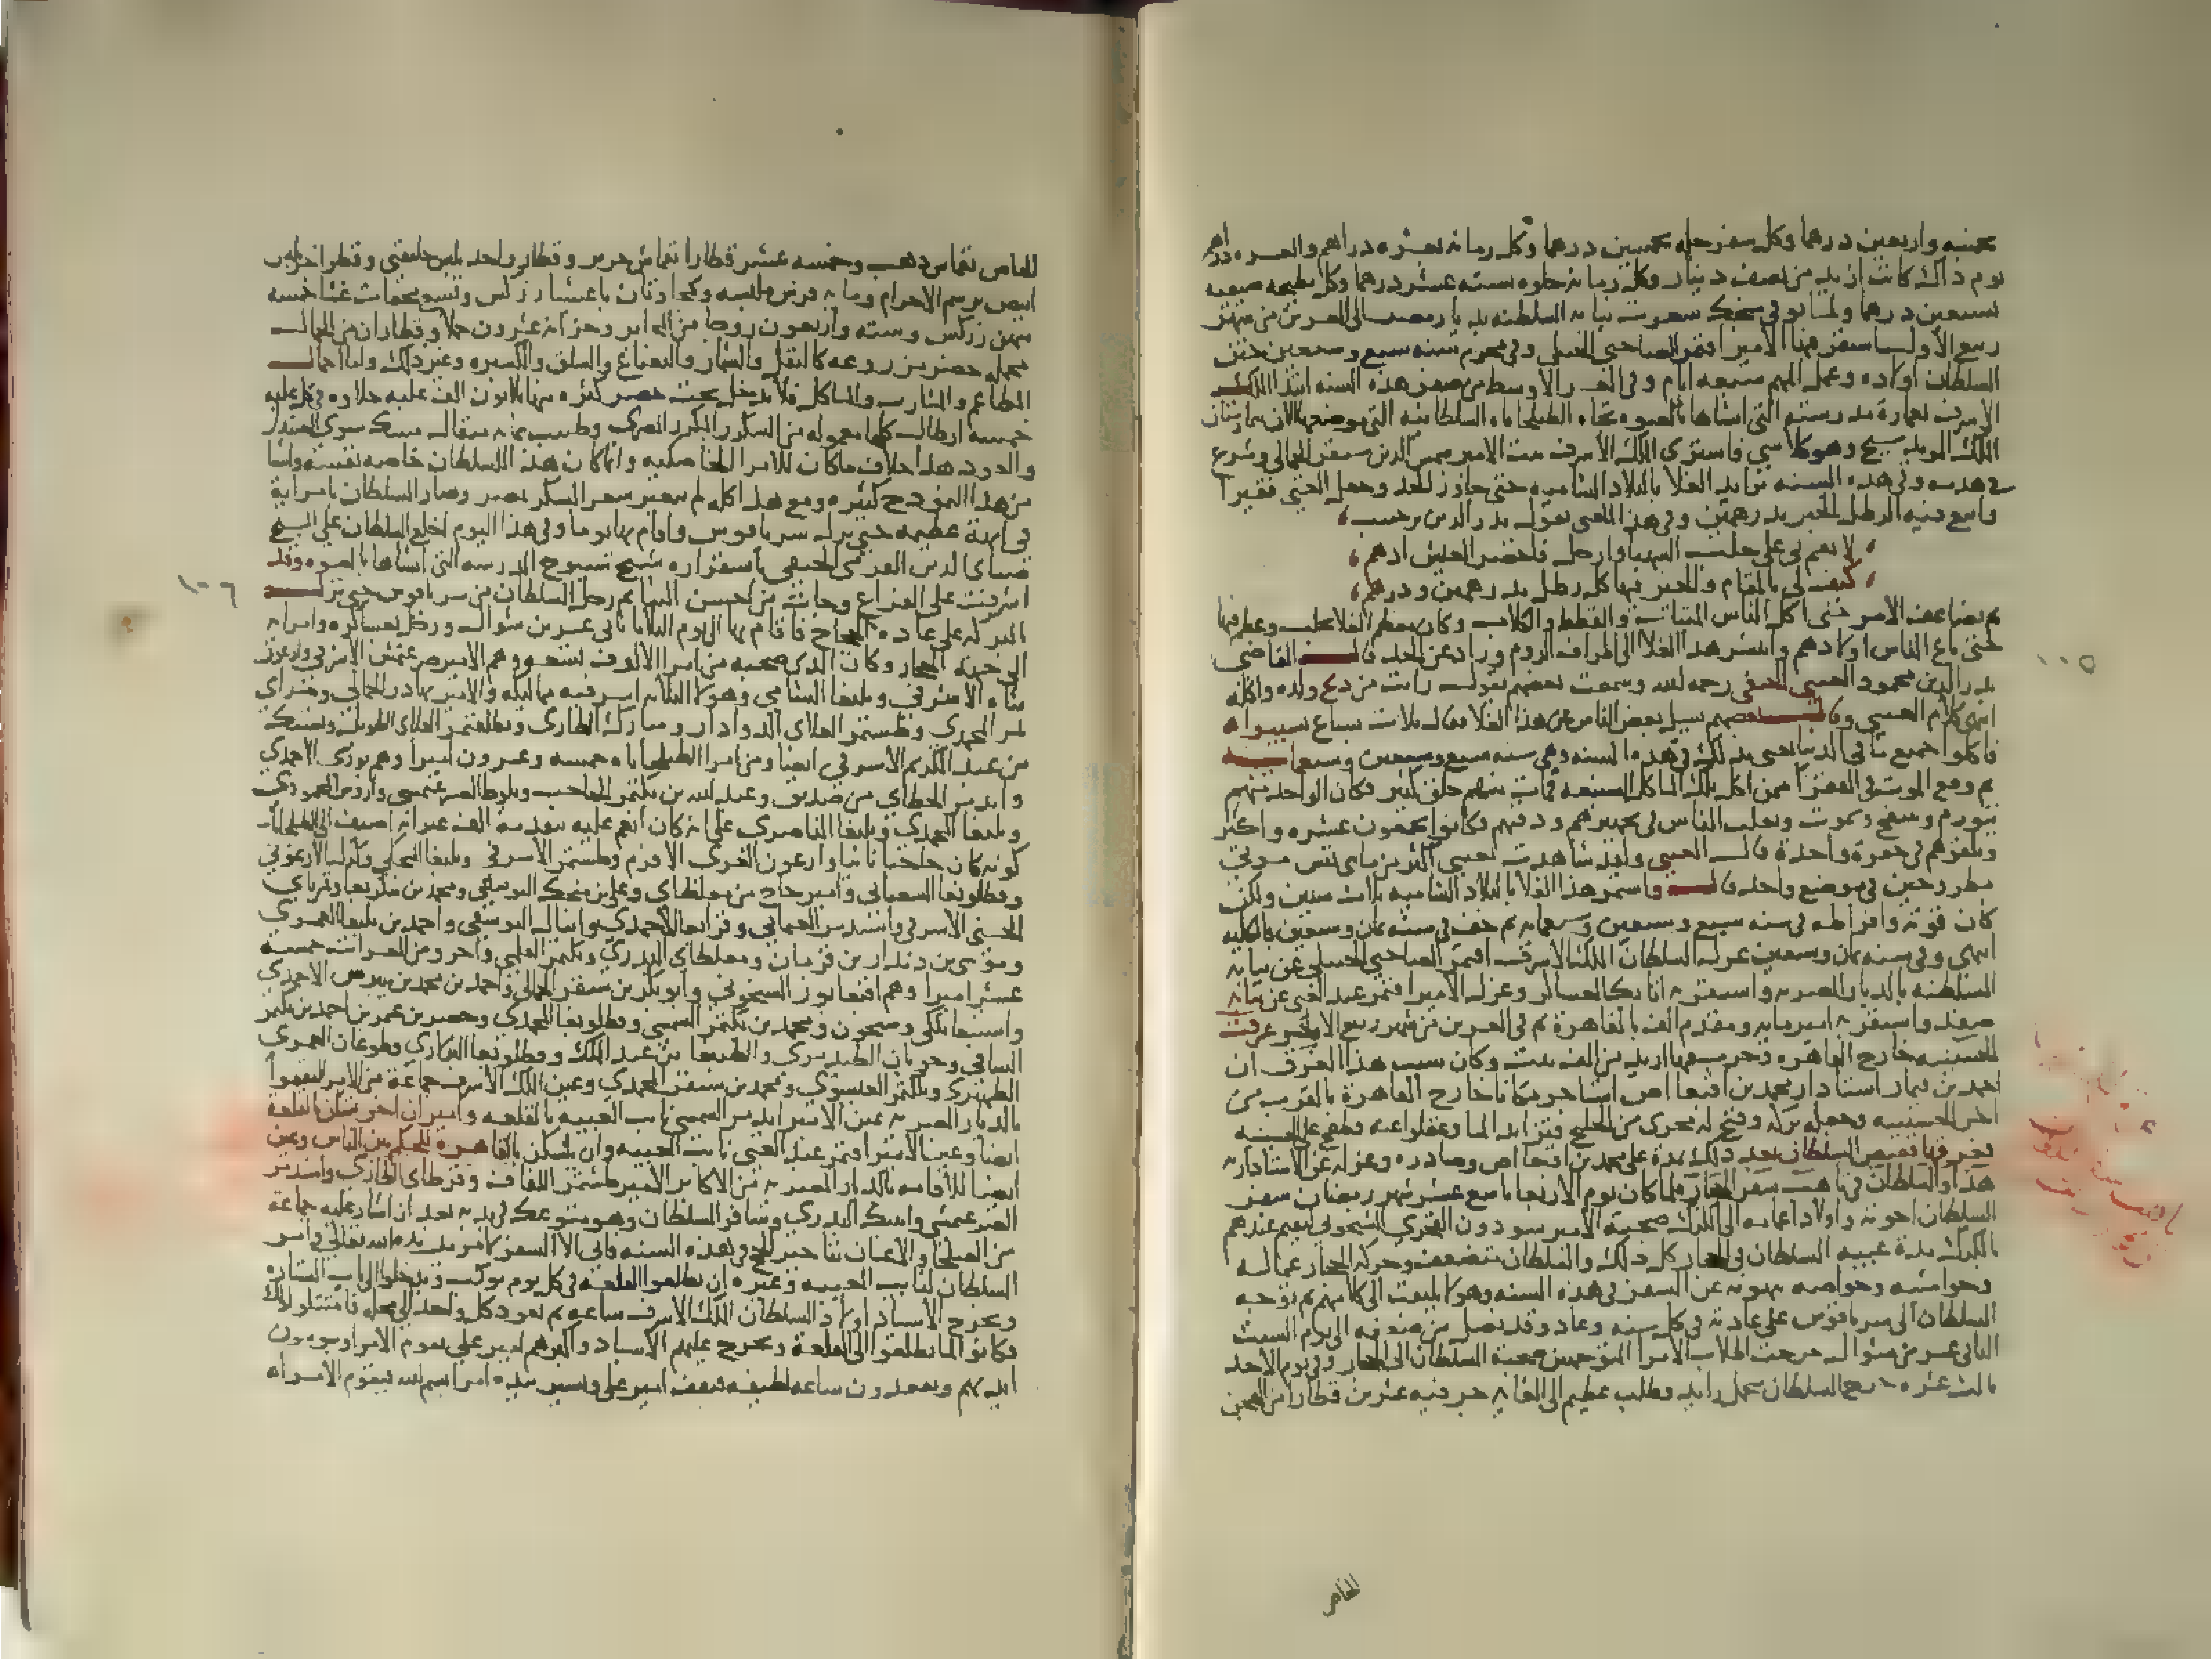 بخمسه واربعين درهما وكل سفرجله بخمسين درهما وكل رمانه بعشره دراهم والعشره دراهم
يوم ذاك كانت ازيد من نصف دينار وكل رمانه حلوه بسته عشر درهما وكل بطيخه صيفيه
بسبعين درهما ولما توفي منجك شغرت نيابه السلطنه بديار مصر الى العشرين من شهر
ربيع الاول استقر فيها الامير اقتمر الصاحبي الحنبلي وفي محرم سنه سبع وسبعين ختن
السلطان اولاده وعمل المهم سبعه ايام وفي العشر الاوسط من صفر هذه السنه ابتدا الملك
الاشرف بعمارة مدرسته التي انشاها بالصوه تجاه الطبلخاناه السلطانيه التي موضعها الان بيمارستان
الملك المويد شيخ وهو كلا شي فاشترى الملك الاشرف بيت الامير شمس الدين سنقر الجمالي وشرع
في هدمه وفي هذه السنه تزايد الغلا بالبلاد الشاميه حتى جاوز الحد وجعل الغني فقيرا
وابيع فيه الرطل الخبز بدرهمين وفي هذا المعنى يقول بدر الدين بن حبيب
لا تقم بي على حلب الشهبا وارحل فاخضر العيش ادهم
كيف لي بالمقام والخبز فيها كل رطل بدرهمين ودرهم
ثم تضاعف الامر حتى اكل الناس الميتات والقطط والكلاب وكان معظم الغلا بحلب وعظم فيها
حتى باع الناس اولادهم وانتشر هذا الغلا الى اطراف الروم وزاد عن الحد قال القاضي
بدر الدين محمود العيني الحنفي رحمه الله وسمعت بعضهم يقول رايت من ذبح ولده واكله
انتهى كلام العيني وقال بعضهم سيل بعض الناس عن هذا الغلا فقال ثلاث سباع سيبوا
فاكلوا جميع ما في الدنيا يعني بذلك في هذه السنه وهي سنه سبع وسبعين وسبعمايه
ثم وقع الموت في الفقرا ممن اكل تلك الماكل الشنعه فمات منهم خلق كثير فكان الواحد منهم
يتورم وينتفخ ويموت وتعلب الناس في تجهيزهم ودفنهم فكانوا يحفرون عشره واكثر
ويلقوهم في حفرة واحدة قال العيني ولقد شاهدت بعيني اكثر من مايتي نفس موتى
مطروحين في موضع واحد قال واستمر هذا الغلا بالبلاد الشاميه ثلاث سنين ولكن
كان قوته وافراطه في سنه سبع وسبعين وسبعمايه ثم خف في سنه ثمان وسبعين بالكليه
انتهى وفي سنه ثمان وسبعين عزل السلطان الملك الاشرف اقتمر الصاحبي الحنبلي عن نيابه
السلطنه بالديار المصريه واستقر به اتابك العساكر وعزل الامير اقتمر عبد الغني عن نيابه
صفد واستقر به امير مايه ومقدم الف بالقاهرة ثم في العشرين من شهر ربيع الاخر غرقت
الحسينيه خارج القاهره وخرب بها ازيد من الف بيت وكان سبب هذا الغرق ان
احمد بن قيماز استادار محمد بن اقبغا اص استاجر مكانا خارج القاهرة بالقرب من
اخر الحسينيه وجعله بركه وفتح له مجرى من الخليج فتزايد الما وغفلوا عنه وطفح على الحسينيه
فغرقها فقبض السلطان بعد ذلك بمدة على محمد بن اقبغا اص وصادره وعزله عن الاستاداريه
هذا والسلطان في تاهب سفر الحجاز فلما كان يوم الاربعا تاسع عشر شهر رمضان سفر
السلطان اخوته واولاد اعمامه الى الكرك صحبة الامير سودون الفخري الشيخوني ليقيم عندهم
بالكرك مدة غيبه السلطان في الحجاز كل ذلك والسلطان متضعف وحركه الحجاز عماله
وحواشيه وخواصه ينهونه عن السفر في هذه السنه وهو لا يلتفت الى كلامهم ثم توجه
السلطان الى سرياقوس على عادته في كل سنه وعاد وقد نصل من ضعفه الى يوم السبت
الثاني عشر من شوال خرجت اطلاب الامرا المتوجهين صحبة السلطان الى الحجاز وفي يوم الاحد
ثالث عشره خرج السلطان بتجمل زايد وطلب عظيم الى الغايه جر فيه عشرين قطارا من الهجن
الخاص
١٠٥
الخاص بقماش ذهب وخمسه عشر قطارا بقماش حرير وقطار واحد بلبس خليفتي وقطر اخر بلبس
ابيض برسم الاحرام ومايه فرس ملبسه وكجاوتان باغشيا زركش وتسع محفات غشا خمسه
منهن زركش وسته واربعون زوجا من المحاير وخزانه عشرون جملا وقطاران من الجمال
محمله خضر مزروعه كالبقل والشمار والنعناع والسلق والكسبره وغير ذلك واما احمال
المطاعم والمشارب والماكل فلا تدخل تحت حصر كثره منها ثلاثون الف علبه حلاوه في كل علبه
خمسه ارطال كلها معموله من السكر المكرر المصري وطيب بمايه مثقال مسك سوى الصندل
والعود هذا خلاف ماكان للامرا والخاصكيه وانما كان هذا للسلطان خاصه نفسه واشيا
من هذا النموذج كثيره ومع هذا كله لم يتغير سعر السكر بمصر وسار السلطان بامرايه
في ابهة عظيمه حتى نزل سرياقوس واقام بها يوما وفي هذا اليوم اخلع السلطان على الشيخ
ضياي الدين القرمي الحنفي باستقراره شيخ شيوخ المدرسه التي انشاها بالصوه وقد
اشرفت على الفراغ وجاءت من احسن البنا ثم رحل السلطان من سرياقوس حتى نزل
البركه على عاده الحجاج فاقام بها الى يوم الثلاثا ثاني عشرين شوال ورحل بعساكره وامرايه
الى جهه الحجاز وكان الذي صحبه من امرا الالوف تسعه وهم الامير صرغتمش الاشرفي وارغون
شاه الاشرفي ويلبغا الشامي وهولا الثلاثه اشرفيه مماليكه والامير بهادر الجمالي وصراي
تمر المحمدي وطشتمر العلاي الدوادار ومبارك الطازي وقطلقتمر العلاي الطويل وبشتك
من عبد الكريم الاشرفي ايضا ومن امرا الطبلخاناه خمسه وعشرون اميرا وهم بوري الاحمدي
وايدمر الخطاي من صديق وعبد الله بن بكتمر الحاجب وبلوط الصرغتمشي واروس المحمودي
ويلبغا المحمدي ويلبغا الناصري على انه كان انعم عليه بتقدمه الف غير انه اضيف الى الطبلخاناه
كونه كان حاجبا ثانيا وارغون العزي الافرم وطشتمر الاشرفي ويلبغا المنجكي وكزل الارغوني
وقطلوبغا الشعباني وامير حاج بن مغلطاي وعلي بن منجك اليوسفي ومحمد بن تنكزبغا وتمرباي
الحسني الاشرفي واسندمر العثماني وقرابغا الاحمدي واينال اليوسفي واحمد بن يلبغا العمري
وموسى بن دندار بن قرمان ومغلطاي البدري وبكتمر العلمي واخر ومن العشرات خمسه
عشر اميرا وهم اقبغا بوز الشيخوني وابو بكر بن سنقر الجمالي واحمد بن محمد بن بيبرس الاحمدي
واسنبغا التلكي وشيخون ومحمد بن بكتمر الشمسي وقطلوبغا المحمدي وخضر بن عمر بن احمد بن بكتمر
الساقي وجوبان الطيدمري والطنبغا من عبد الملك وقطلوبغا البزلاري وطوغان العمري
الظهيري وتلكتمر العيسوي ومحمد بن سنقر المحمدي وعين الملك الاشرف جماعة من الامرا ليقيموا
بالديار المصريه عين الامير ايدمر الشمسي نايب الغيبه بالقلعه واميران اخر تسكن بالقلعة
ايضا وعين الامير اقتمر عبد الغني نايب الغيبه وان يسكن بالقاهرة للحكم بين الناس وعين
ايضا للاقامه بالديار المصريه من الاكابر الامير طشتمر اللفاف وقرطاي الطازي واسندمر
الصرغتمشي واينبك البدري وسافر السلطان وهو متوعك في بدنه بعد ان اشار عليه جماعة
من الصلحا والاعيان بتاخير الحج في هذه السنه فابى الا السفر لامر يريده الله تعالى وامر
السلطان لنايب الغيبه وغيره ان يطلعوا القلعه في كل يوم موكب ويدخلوا الى باب الستاره
ويخرج الاسياد اولاد السلطان الملك الاشرف ساعه ثم يعود كل واحد الى محله فامتثلوا ذلك
فكانوا لما يطلعوا الى القلعة ويخرج عليهم الاسياد واكبرهم امير علي يقوم الامرا ويبوسون
ايديهم ويقعدون ساعه لطيفه فيقف امير علي ويشير بيده امرا بسم الله فيقوم الامراه
١٠٦